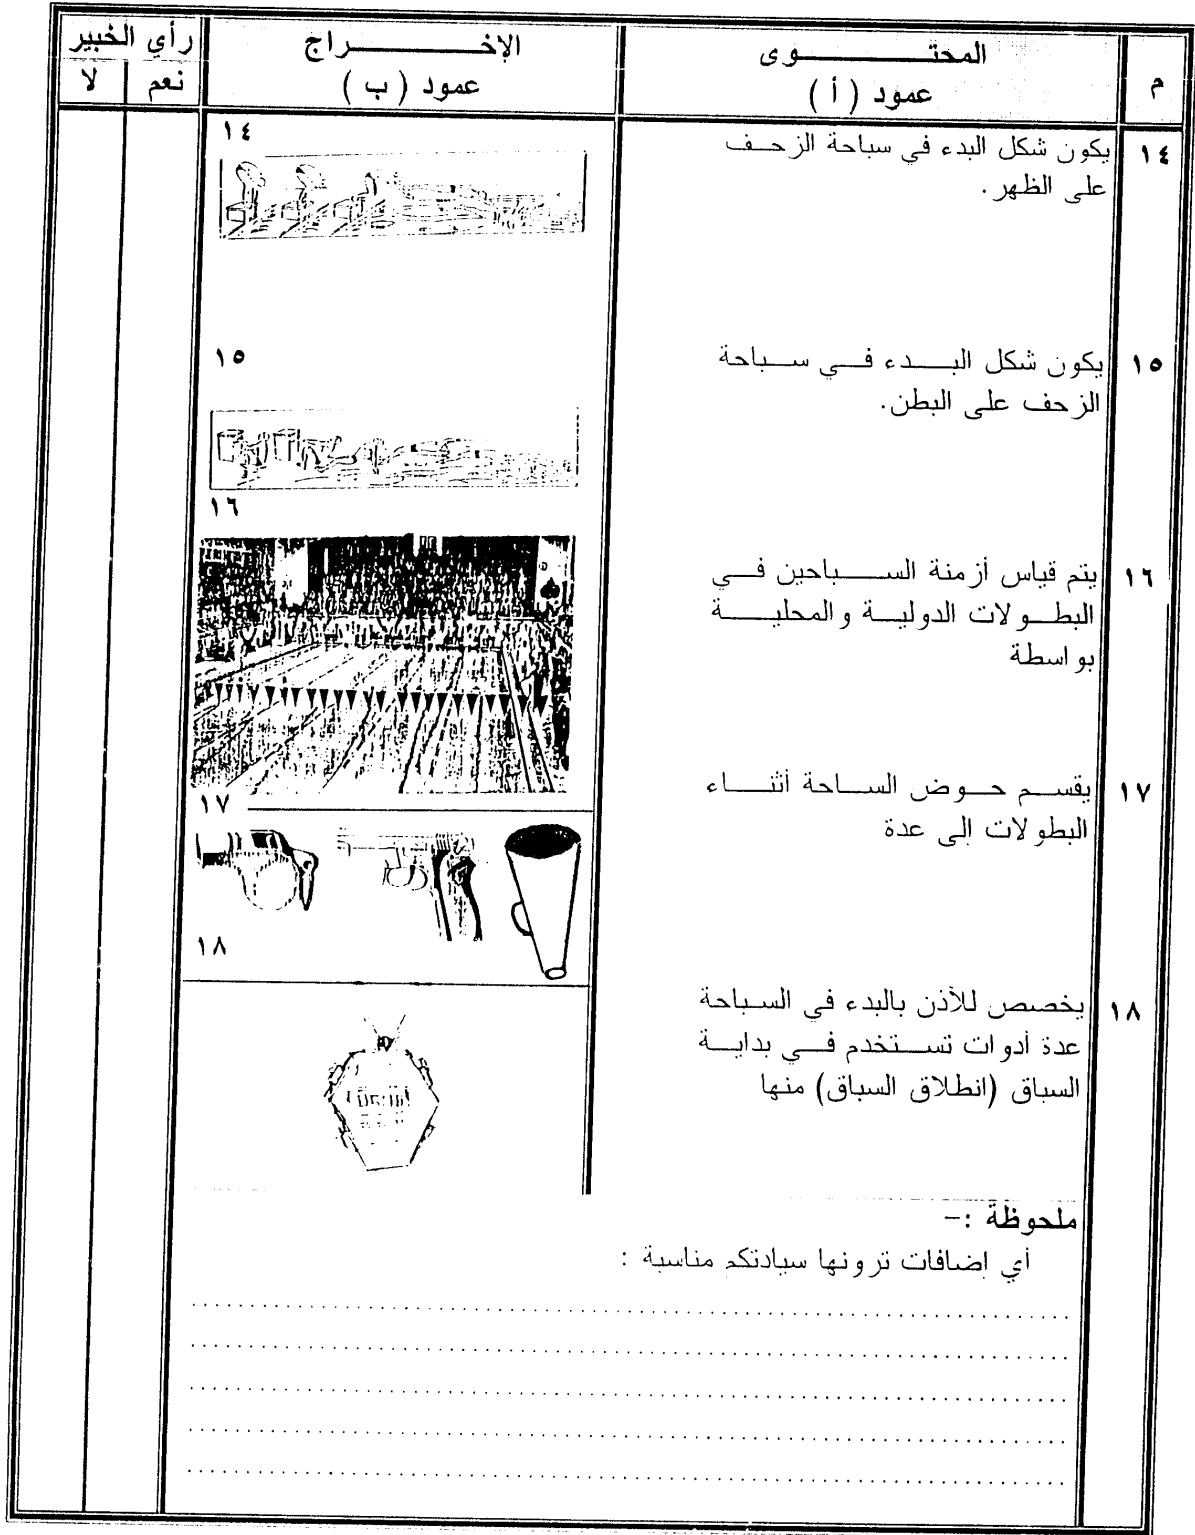 م
المحتوى
عمود ( أ )
الإخراج
عمود ( ب )
رأي الخبير
نعم
لا
١٤
يكون شكل البدء في سباحة الزحف
على الظهر.
١٤
١٥
يكون شكل البدء في سباحة
الزحف على البطن.
١٥
١٦
يتم قياس أزمنة السباحين في
البطولات الدولية والمحلية
بواسطة
١٦
١٧
يقسم حوض الساحة أثناء
البطولات إلى عدة
١٧
١٨
يخصص للأذن بالبدء في السباحة
عدة أدوات تستخدم في بداية
السباق (انطلاق السباق) منها
١٨
ملحوظة :-
أي إضافات ترونها سيادتكم مناسبة :